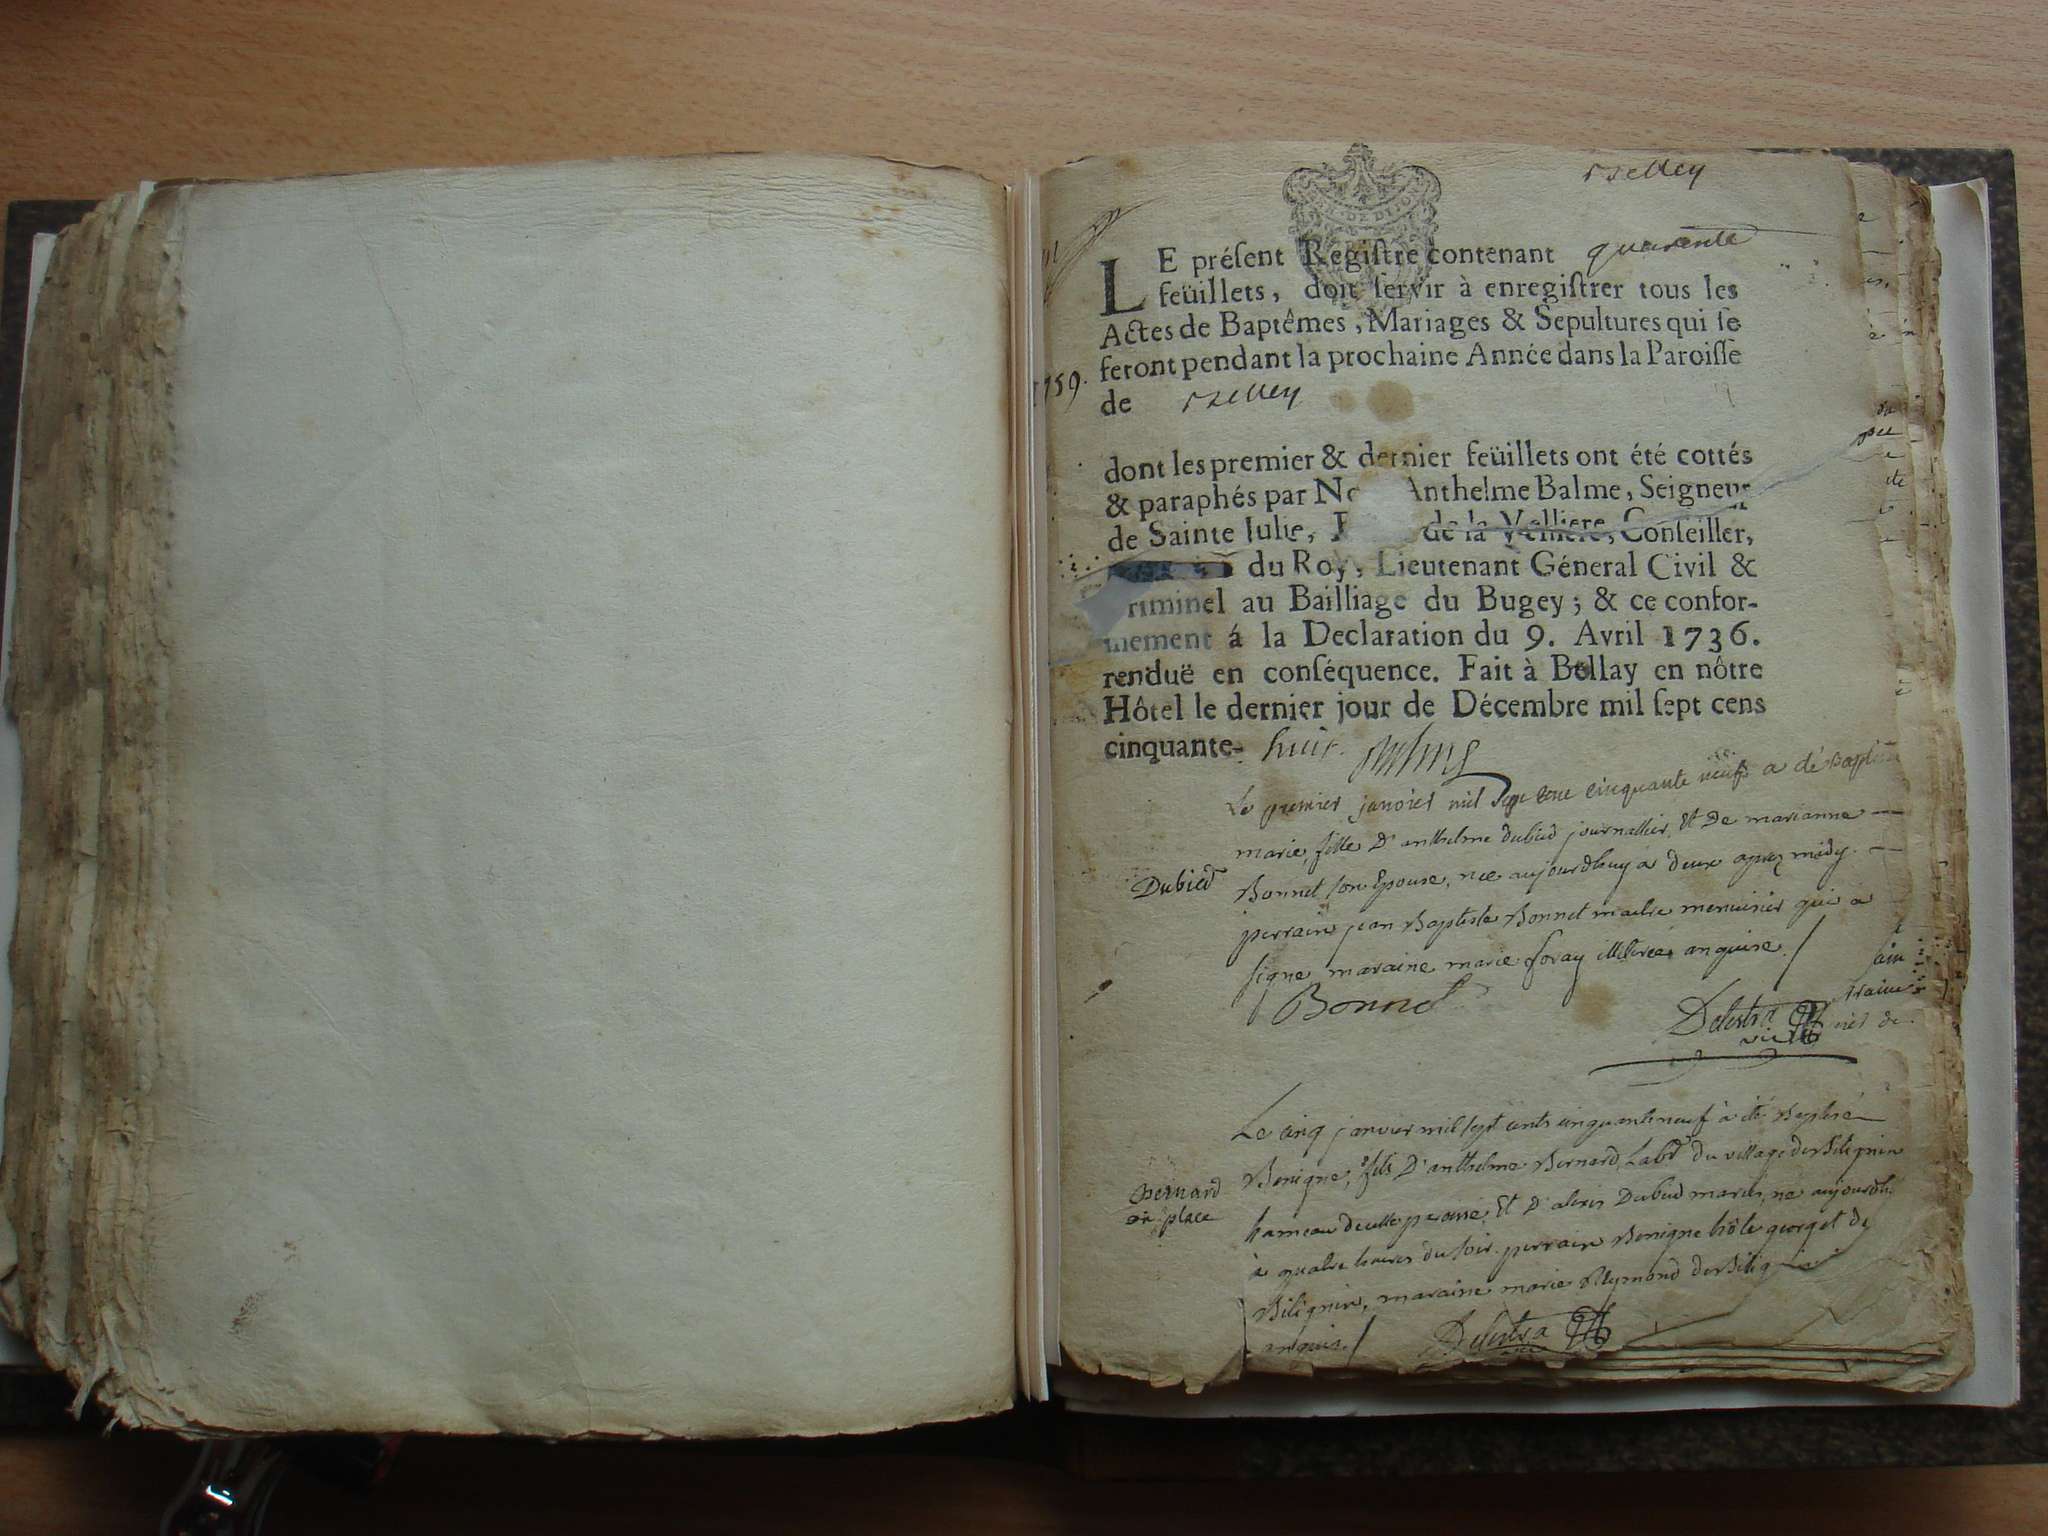 Belley
GEN. DE DIJON
LE préſent Regiſtre contenant quarente
feüillets, doit ſervir à enregiſtrer tous les
Actes de Baptêmes, Mariages & Sepultures qui ſe
feront pendant la prochaine Année dans la Paroiſſe
1759.
de Belley
dont les premier & dernier feüillets ont été cottés
& paraphés par Anthelme Balme, Seigneur
de Sainte Julie, de la Velliere, Conſeiller,
du Roy, Lieutenant Géneral Civil &
riminel au Bailliage du Bugey; & ce confor-
mement á la Declaration du 9. Avril 1736.
renduë en conſéquence. Fait à Bellay en nôtre
Hôtel le dernier jour de Décembre mil ſept cens
cinquante- huit. Balme
Le premier janvier mil sept cent cinquante neuf a été Baptisée
marie, fille D'anthelme Dubied journallier, Et De marianne
Dubied
Bonnet son Epouse, née aujourdhuy a deux aprez midy.
perrain jean Baptiste Bonnet maitre menuisier qui a
signé maraine marie foray illitirée, anquise.
Bonnet
Delestra vic
Le cinq janvier mil sept cents cinquante neuf à été Baptisé
Benigne, fils D'anthelme Bernard Labr Du village de Bilignin
Bernard
en place
hameau de cette paroisse, Et D'alexis Dubied mariés, né aujourdh.
à quatre heures du soir. perrain Benigne hôte georget de
Bilignin, maraine marie Reymond de Bilignin
anquis.
Delestra vic